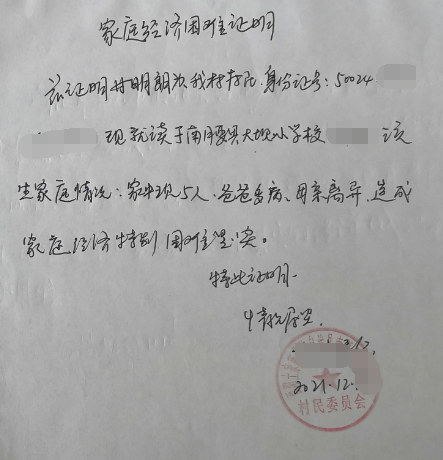 家庭经济困难证明
兹证明付明朗次我村村民,身份证号:50024
现就读于南腰界大坝小学校 该
生家庭情况:家中现5人、爸爸多病、母亲离异、造成
家庭经济特别困难是实。
特此证明.
情况属实.
2021.12.
村民委员会